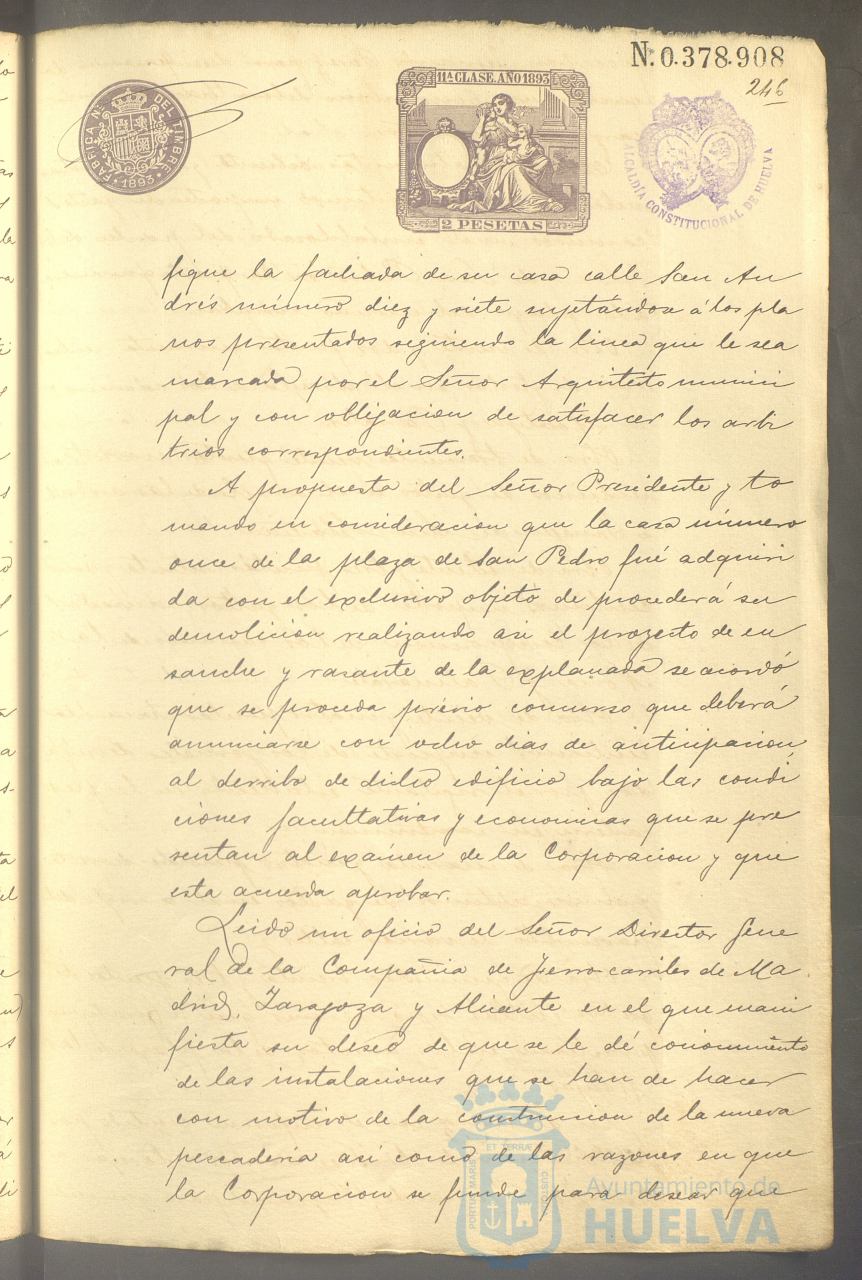 N.º 0.378.908
246
11ª CLASE. AÑO 1893
FABRICA Nal. DEL TIMBRE
1893
2 PESETAS
ALCALDÍA CONSTITUCIONAL DE HUELVA
fique la fachada de su casa calle San An
drés número diez y siete sujetándose á los pla
nos presentados siguiendo la linea que le sea
marcada por el Señor Arquitecto munici
pal y con obligacion de satisfacer los arbi
trios correspondientes.
A propuesta del Señor Presidente y to
mando en consideracion que la casa número
once de la plaza de San Pedro fué adquiri
da con el exclusivo objeto de proceder á su
demolicion realizando asi el proyecto de en
sanche y rasante de la explanada se acordó
que se proceda prévio concurso que deberá
anunciarse con ocho dias de anticipacion,
al derribo de dicho edificio bajo las condi
ciones facultativas y economicas que se pre
sentan al exámen de la Corporacion y que
esta acuerda aprobar.
Leido un oficio del Señor Director Gene
ral de la Compañia de Ferro-carriles de Ma
drid, Zaragoza y Alicante en el que mani
fiesta su deseo de que se le dé conocimiento
de las instalaciones que se han de hacer
con motivo de la construccion de la nueva
pescaderia asi como de las razones en que
la Corporacion se funde para desear que
PORTUS MARIS ET TERRÆ CUSTODIA
Ayuntamiento de
HUELVA